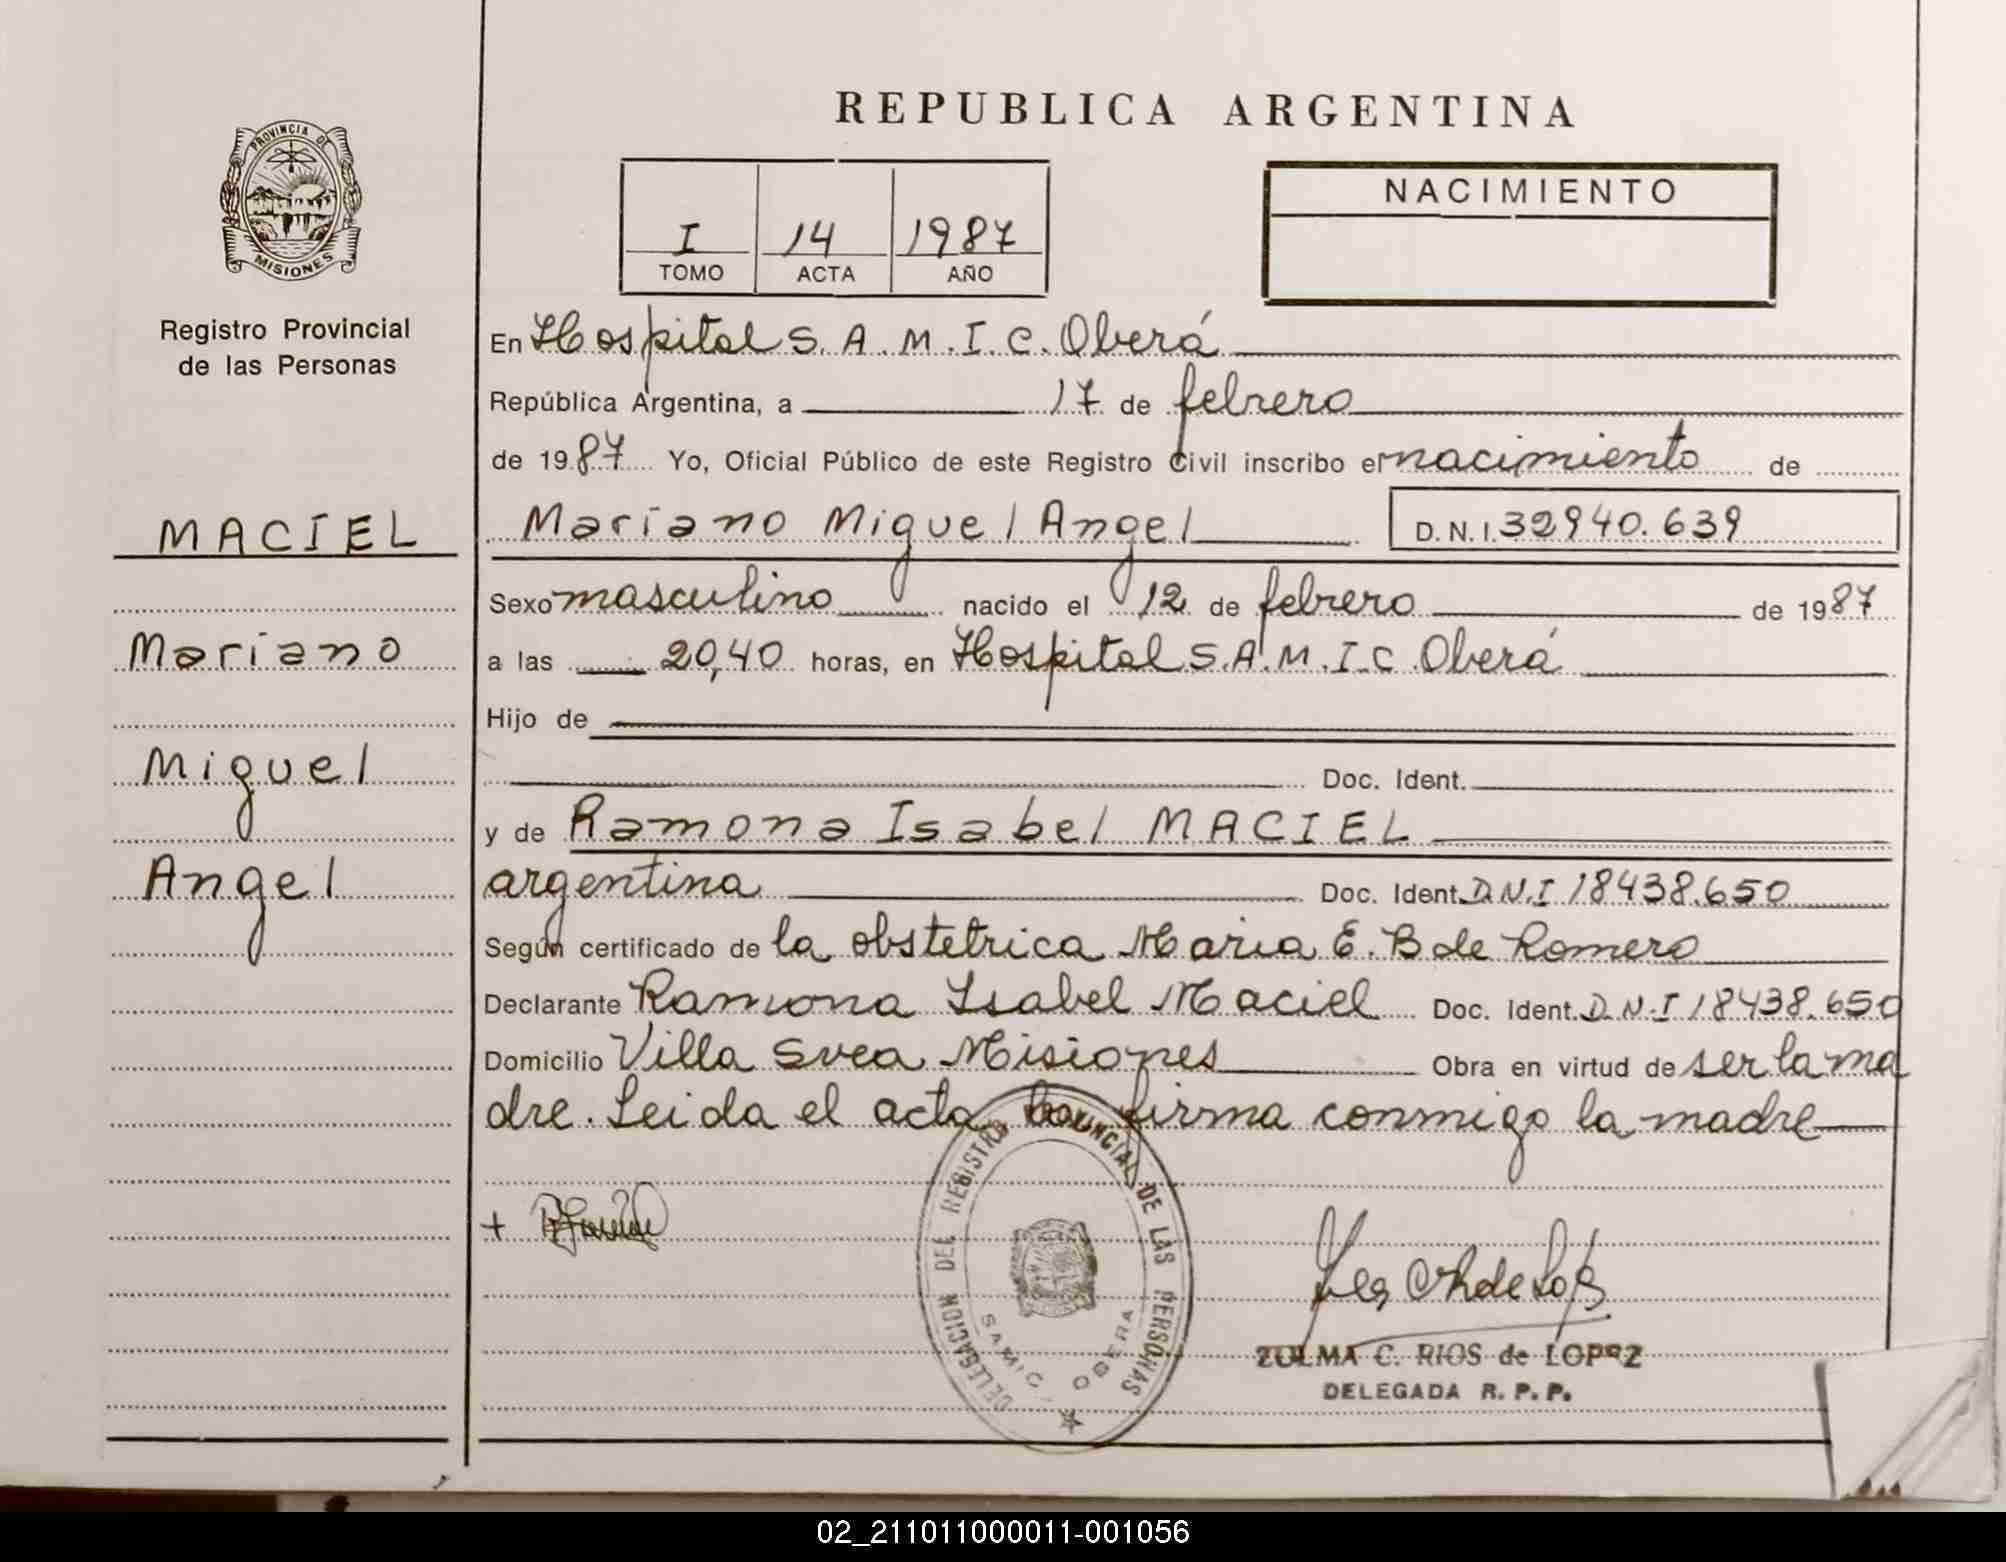 REPUBLICA ARGENTINA
PROVINCIA DE
MISIONES
Registro Provincial
de las Personas
I 14 1987
TOMO ACTA AÑO
NACIMIENTO
En Hospital S. A. M. I. C. Oberá
República Argentina, a 17 de febrero
de 1987 Yo, Oficial Público de este Registro Civil inscribo el nacimiento de
MACIEL
Mariano
Miguel
Angel
Mariano Miguel Angel D.N.I. 32940.639
Sexo masculino nacido el 12 de febrero de 1987
a las 20,40 horas, en Hospital S.A.M.I.C. Oberá
Hijo de
Doc. Ident.
y de Ramona Isabel MACIEL
argentina Doc. Ident. D.N.I 18438.650
Según certificado de la obstetrica Maria E. B de Romero
Declarante Ramona Isabel Maciel Doc. Ident. D.N.I 18438.650
Domicilio Villa Svea Misiones Obra en virtud de ser la ma
dre. Leida el acta la firma conmigo la madre
DELEGACION DEL REGISTRO PROVINCIAL DE LAS PERSONAS
SAMIC - OBERA
ZULMA C. RIOS de LOPEZ
DELEGADA R. P. P.
02_211011000011-001056